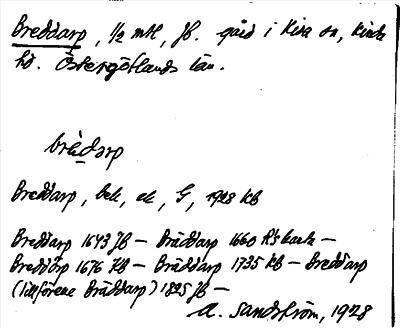 Breddarp, 1/2 mtl, Jb. gård i Kisa sn, Kinda
hd. Östergötlands län.
brädarp
Breddarp, bek, ek, G, 1928 KB
Breddarp 1643 Jb – Bräddarp 1660 –
Breddörp 1676 Kb – Bräddarp 1735 Kb – Breddarp
(tillförene Bräddarp) 1825 Jb –
A. Sandström, 1928